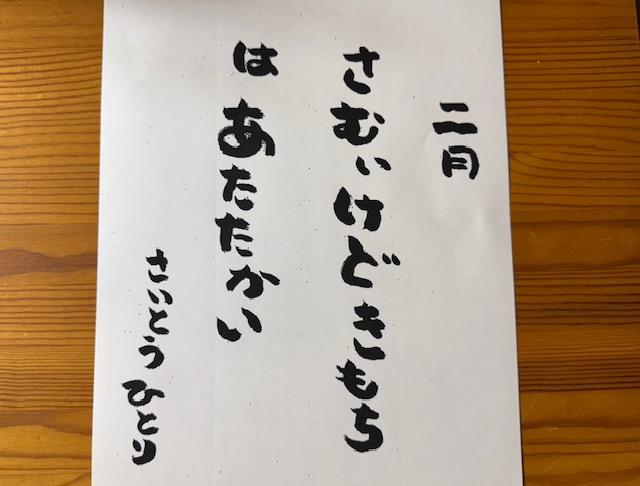 二月
さむいけどきもち
はあたたかい
さいとうひとり